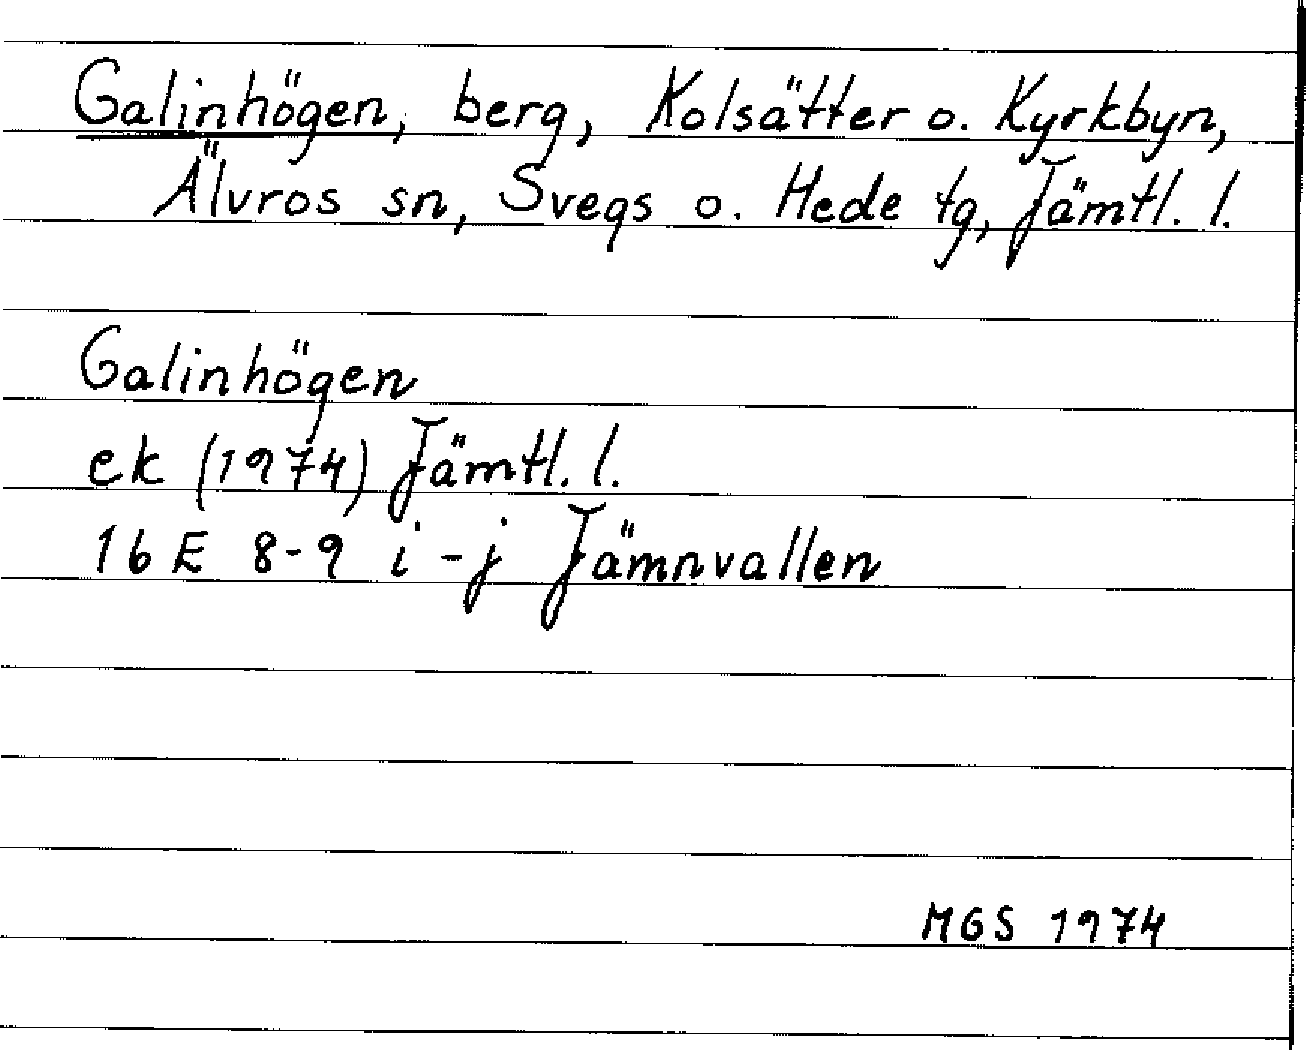 Galinhögen, berg, Kolsätter o. Kyrkbyn,
Älvros sn, Svegs o. Hede tg, Jämtl. l.
Galinhögen
ek (1974) Jämtl. l.
16 E 8-9 i-j Jämnvallen
MGS 1974